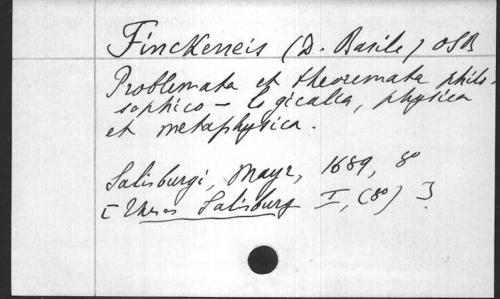 Finckeneis (D. Basile) OSB
Problemata et theoremata philo-
sophico - logicalia, physica
et metaphysica.
Salisburgi, Mayr, 1689, 8°
[Theses Salisburg I, (80) ]